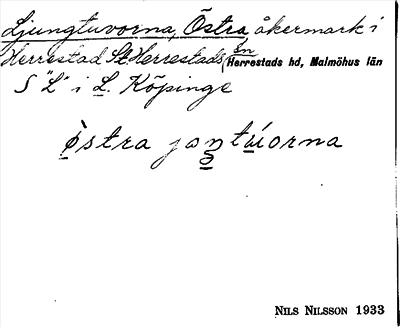 Ljungtuvorna, Östra, åkermark i
Herrestad St Herrestads sn Herrestads hd, Malmöhus län
S "L" i L. Köpinge
östra joŋtúorna
NILS NILSSON 1933